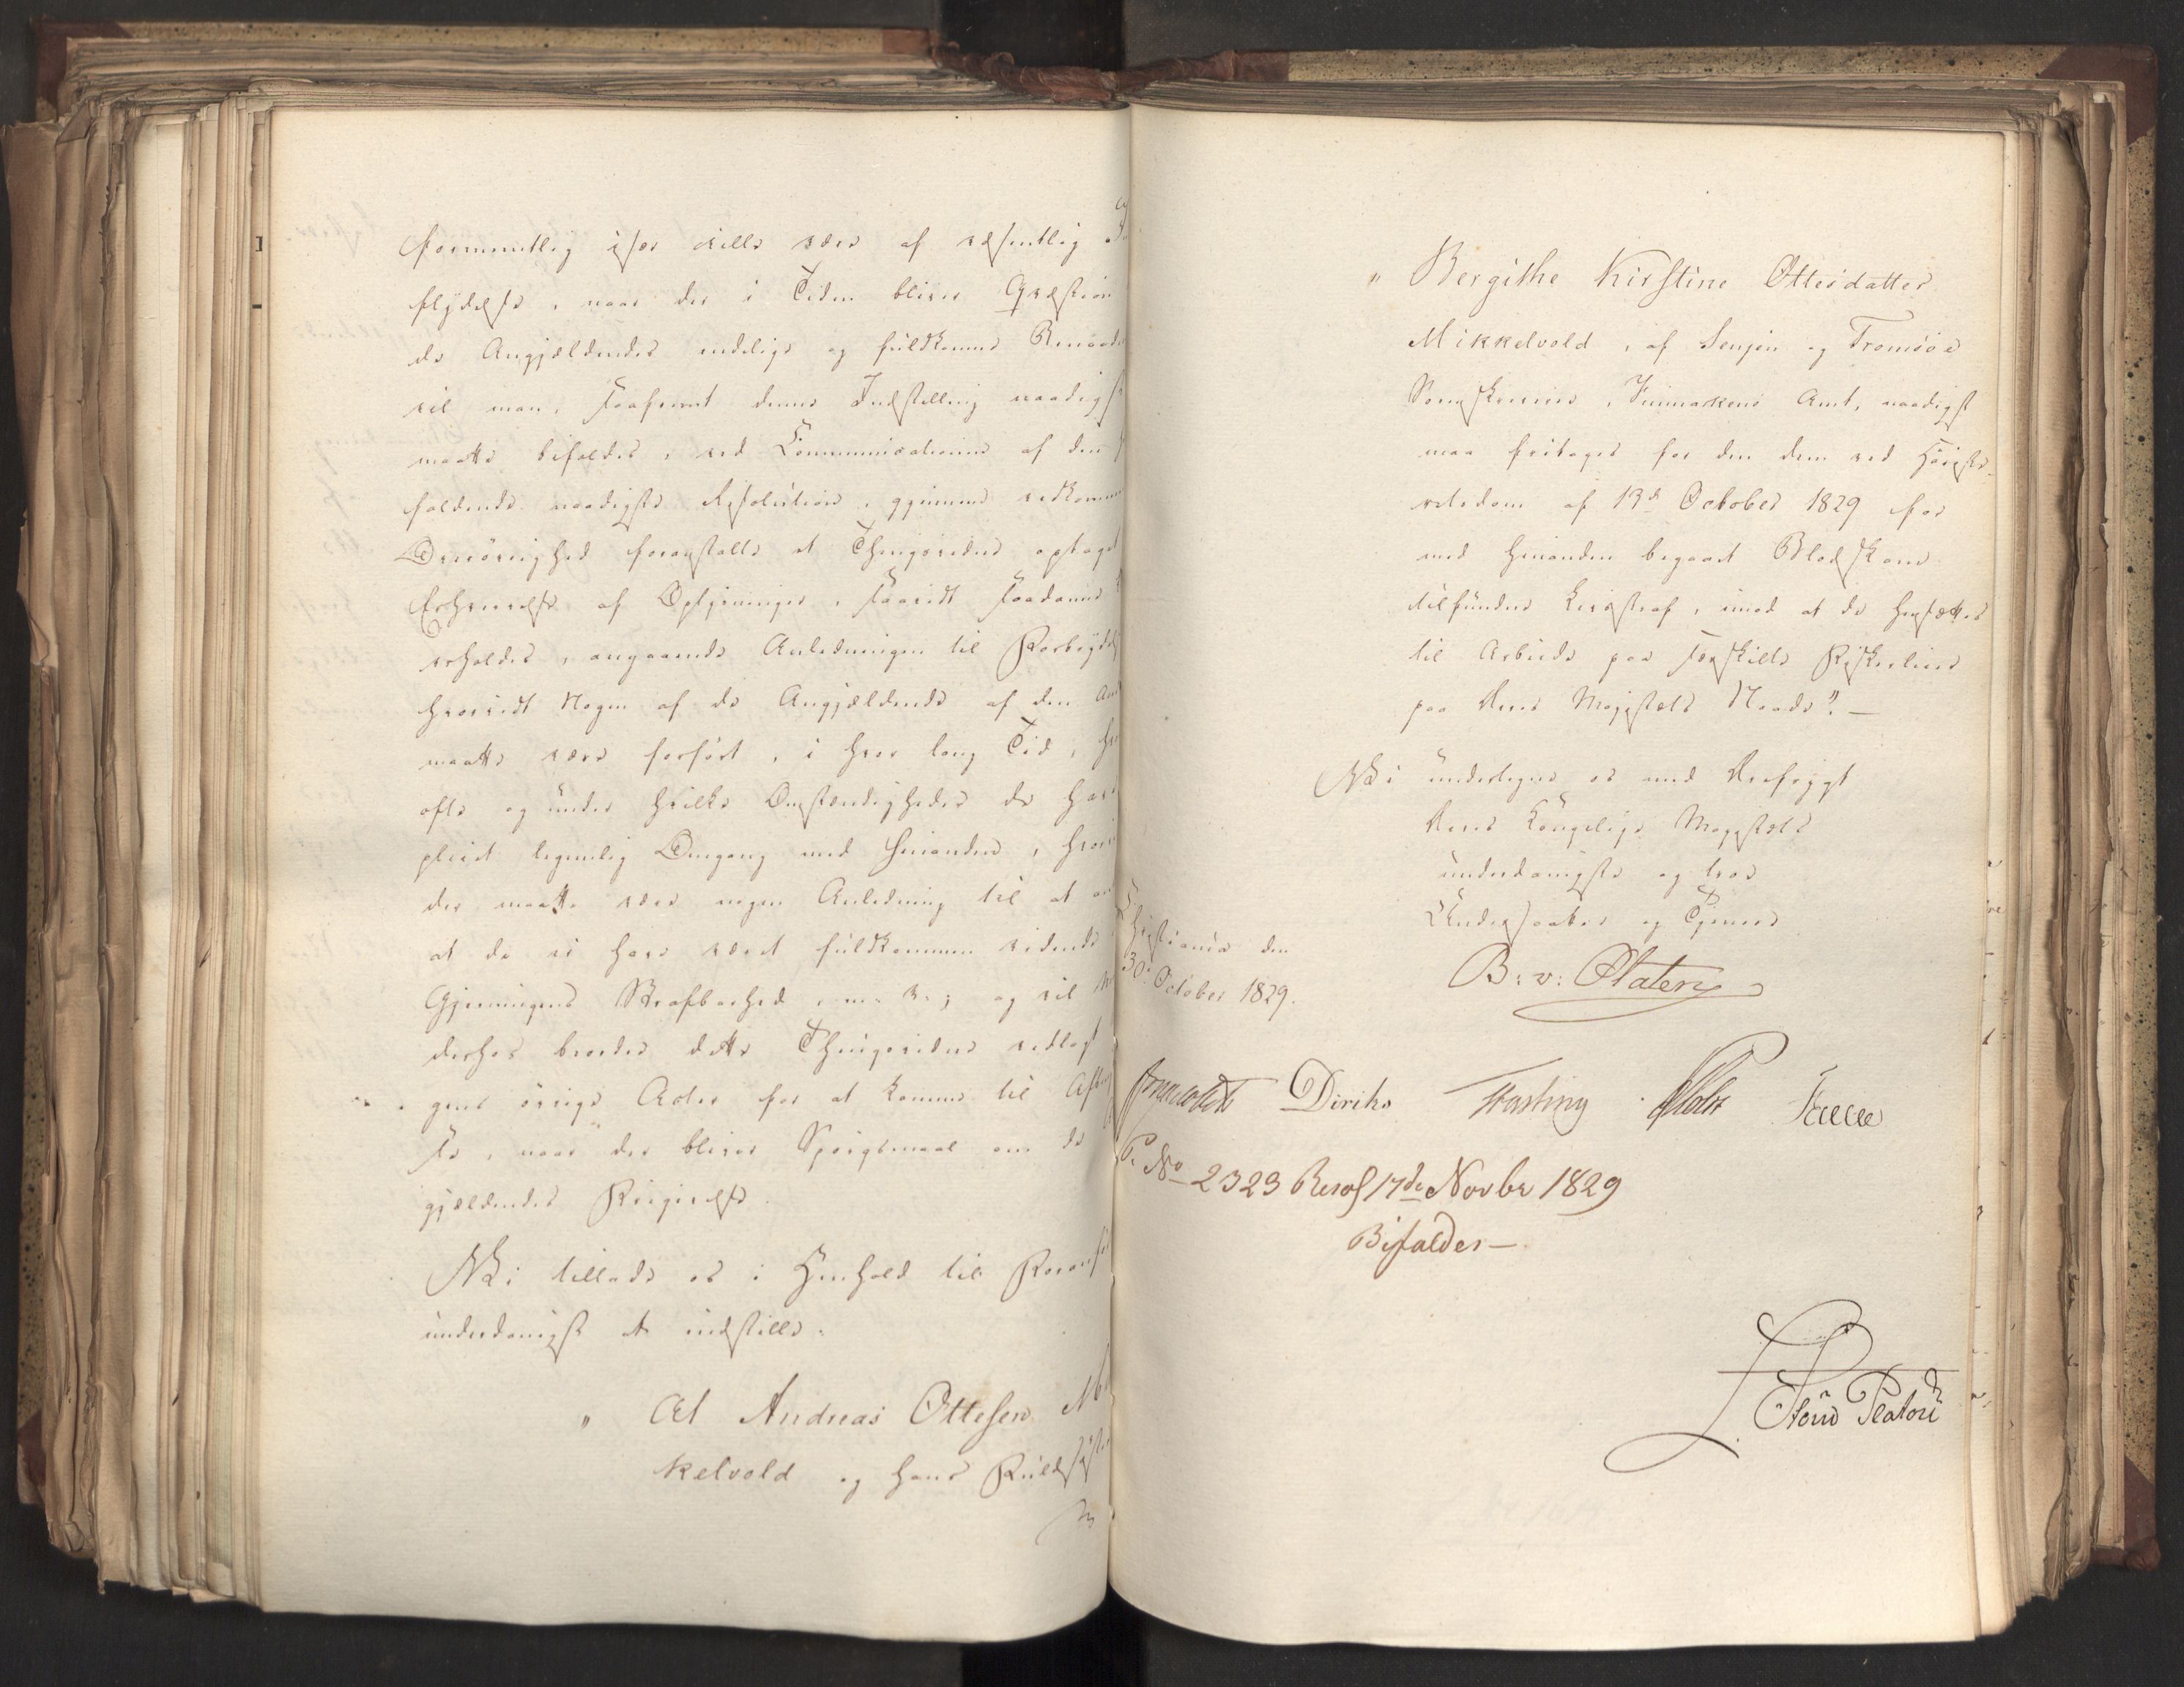 formentlig især ville være af væsentlig
flydelse, naar der i Tiden bliver Qvæstion
de Angjældendes endelige og fuldkomne Benaad
vil man, saafremt denne Indstilling naadigst
maatte bifaldes, ved Communicationen af den
faldende naadigste Resolution, gjennem vedkomm
Øvrighed foranstalte et Thingsvidne optaget
Erhvervelse af Oplysninger, saavidt saadanne
erholdes, angaaende Anledningen til Forbrydel
hvorvidt Nogen af de Angjældende af den And
maatte være forført, i hvor lang Tid, hvo
ofte og under hvilke Omstændigheder de have
pleiet legemlig Omgang med hinanden, hvorv
der maatte være nogen Anledning til at an
at de ei have været fuldkommen vidende
Gjerningens Strafbarhed, m. v.; og vil
derhos beordre dette Thingsvidne vedlagt
gens øvrige Acter for at komme til Afben
se, naar der bliver Spørgsmaal om de
gjældendes Frigivelse.
Vi tillade os i Henhold til Foranfø
underdanigst at indstille:
" At Andreas Ottesen Mik
kelvold og hans Fuldsøster
Bergithe Kirstine Ottesdatter
Mikkelvold, af Senjen og Tromsöe
Sorenskriverie, Finmarkens Amt, naadigst
maa fritages for den dem ved Höieste-
retsdom af 13de October 1829 for
med hinanden begaaet Blodskam
tilfundne Livsstraf, imod at de hensættes
til Arbeide paa særskilte Fiskerleier
paa Deres Majestæts Naade". —
Vi undertegne os med Ærefrygt
Deres Kongelige Majestæts
underdanigste og troe
Undersaatter og Tjenere
Christiania den
30. October 1829.
B: v: Platen
Diriks Fasting Holst
P. No 2323 Resol 17de Novbr 1829
Bifaldes —